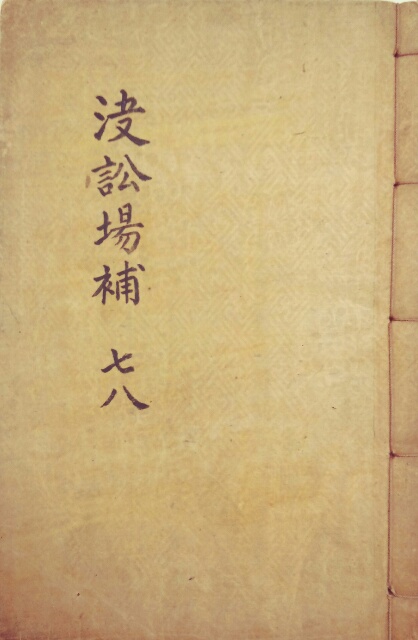 決訟場補 七八